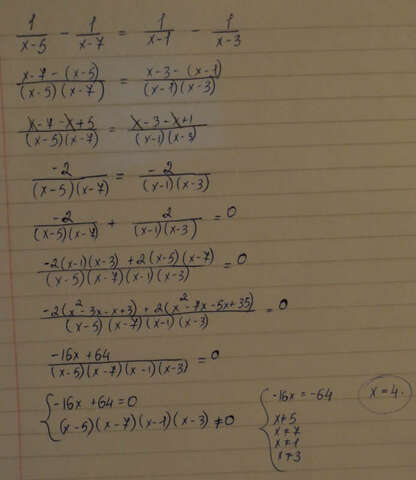 1/(x-5) - 1/(x-7) = 1/(x-1) - 1/(x-3)
(x-7-(x-5))/((x-5)(x-7)) = (x-3-(x-1))/((x-1)(x-3))
(x-7-x+5)/((x-5)(x-7)) = (x-3-x+1)/((x-1)(x-3))
-2/((x-5)(x-7)) = -2/((x-1)(x-3))
-2/((x-5)(x-7)) + 2/((x-1)(x-3)) = 0
(-2(x-1)(x-3)+2(x-5)(x-7))/((x-5)(x-7)(x-1)(x-3)) = 0
(-2(x²-3x-x+3)+2(x²-7x-5x+35))/((x-5)(x-7)(x-1)(x-3)) = 0
(-16x+64)/((x-5)(x-7)(x-1)(x-3)) = 0
{ -16x+64=0
(x-5)(x-7)(x-1)(x-3) ≠ 0
{ -16x = -64
x≠5
x≠7
x≠1
x≠3
x=4.